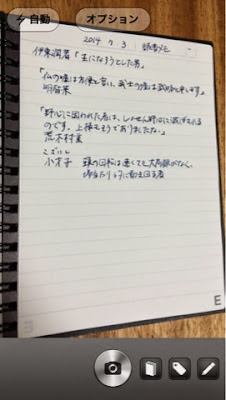 自動
オプション
2014 7 3 読書メモ
伊東潤著「王になろうとした男」
「仏の嘘は方便と言い、武士の嘘は武略と申します」
明智光
「野心に囚われた者は、しょせん野心に滅ぼされる
のです。上様もそうでありましたな」
荒木村重
こざいし
小才子 頭の回転は速くても大局観がなく、
E